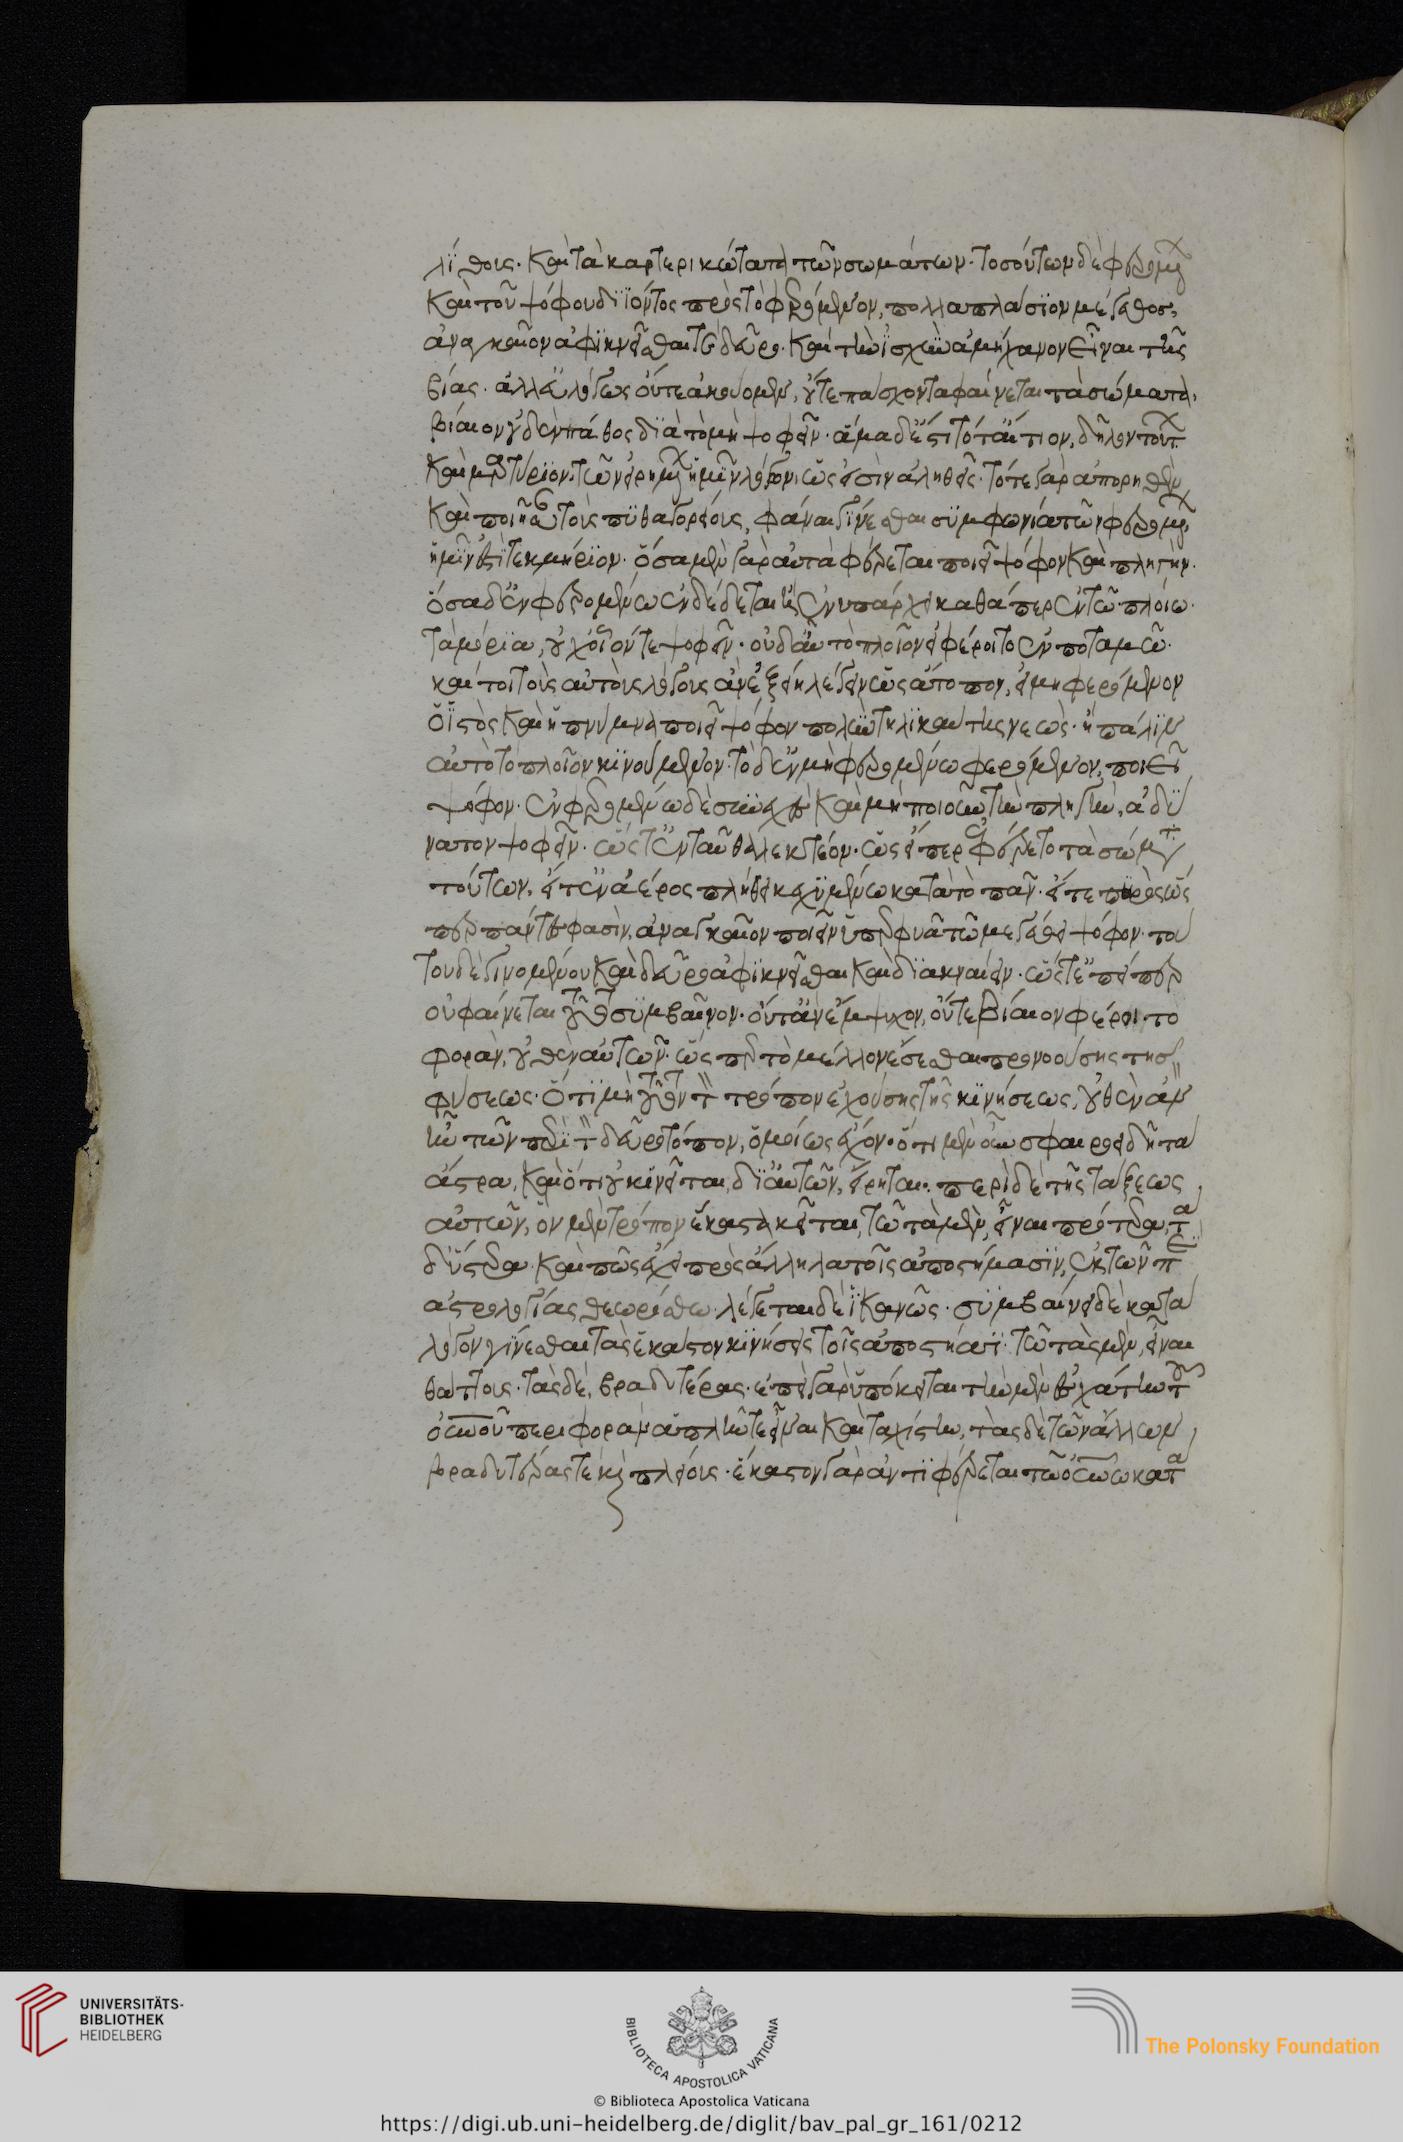 λίθους· καὶ τὰ καρτερικώτατα τῶν σωμάτων· τοσούτων δὲ φερομένων
καὶ τοῦ ψόφου διϊόντος πρὸς τὸ φερόμενον, πολλαπλάσϊον μέγεθος,
ἀναγκαῖον ἀφϊκνεῖσθαι τὲ δεῦρο· καὶ τὴν ἰσχὺν ἀμήχανον εἶναι τῆς
βίας· ἀλλ' εὐλόγως οὔτε ἀκούομεν, οὔτε πάσχοντα φαίνεται τὰ σώματα,
βίαιον οὐδὲν πάθος διὰ τὸ μὴ ψοφεῖν· ἅμα δ' ἐστὶ τό τ' αἴτιον, δῆλον τούτων
καὶ μαρτύριον, τῶν εἰρημένων ἡμῖν λόγων, ὡς εἰσὶν ἀληθεῖς· τό τε γὰρ ἀπορηθὲν
καὶ ποιῆσαν τοὺς πϋθαγορείους, φάναι γίνεσθαι σϋμφωνίαν τῶν φερομένων
ἡμῖν ἐστὶ τεκμήριον· ὅσα μὲν γὰρ αὐτὰ φέρεται ποιεῖ ψόφον καὶ πληγήν·
ὅσα δ' ἐν φερομένω ἐνδέδεται ἢ ἐνυπάρχει καθάπερ ἐν τῶ πλοίω·
τὰ μόρια, οὐχ' οἷόν τε ψοφεῖν· οὐδ' ἂν τὸ πλοῖον εἰ φέροιτο ἐν ποταμῶ·
καί τοι τοὺς αὐτοὺς λόγους ἂν ἐξείη λέγειν ὡς ἄτοπον, εἰ μὴ φερόμενον
ὁ ἱστὸς καὶ ἡ πρύμνα ποιεῖ ψόφον πολὺν τηλϊκαύτης νεὼς· ἢ πάλιν
αὐτὸ τὸ πλοῖον κϊνούμενον· τὸ δ' ἐν μὴ φερομένω φερόμενον, ποιεῖ
ψόφον· ἐν φερομένω δὲ συνεχὲς καὶ μὴ ποιοῦν τὴν πληγὴν, ἀδύ
νατον ψοφεῖν· ὥστ' ἐνταῦθα λεκτέον· ὡς εἴπερ ἐφέρετο τὰ σώματα
τούτων, εἴτ' ἐν ἀέρος πλήθει κεχϋμένω κατὰ τὸ πᾶν· εἴτε πυρὸς ὥς
περ πάντες φασὶν, ἀναγκαῖον ποιεῖν ὑπερφυᾶ τῶ μεγέθει ψόφον· του
του δὲ γινομένου καὶ δεῦρο ἀφϊκνεῖσθαι καὶ διακναίειν· ὥστ' ἐπείπερ
οὐ φαίνεται τοῦτο συμβαῖνον· οὔτ' ἂν ἔμψυχον, οὔτε βίαιον φέροιτο
φορὰν, οὐθὲν αὐτῶν· ὥσπερ τὸ μέλλον ἔσεσθαι προνοούσης τῆς
φύσεως· ὅτι μὴ τοῦτον τὸν τρόπον ἐχούσης τῆς κϊνήσεως, οὐθὲν ἂν
ἦν τῶν περὶ τὸν δεῦρο τόπον, ὁμοίως ἔχον· ὅτι μὲν οὖν σφαιροειδῆ τὰ
ἄστρα, καὶ ὅτι οὐ κινεῖται, δι' αὐτῶν, εἴρηται. περὶ δὲ τῆς τάξεως
αὐτῶν, ὃν μὲν τρόπον ἕκαστα κεῖται, τῶ τὰ μὲν, εἶναι πρότερα, τὰ
δ' ὕστερα. καὶ πῶς ἔχει πρὸς ἄλληλα τοῖς ἀποστήμασϊν, ἐκ τῶν περὶ
ἀστρολογίας θεωρείσθω. λέγεται δὲ ἱκανῶς· συμβαίνει δὲ κατὰ
λόγον γίνεσθαι τὰς ἑκάστου κϊνήσεις τοῖς ἀποστήμασι· τῶ τὰς μὲν, εἶναι
θάττους· τὰς δὲ, βραδυτέρας· ἐπεὶ γὰρ ὑπόκειται τὴν μὲν ἐσχάτην τοῦ
οὐνοῦ περιφορὰν ἁπλῆν τε εἶναι καὶ ταχίστην, τὰς δὲ τῶν ἄλλων
βραδυτέρας τε καὶ πλείους· ἕκαστον γὰρ ἀντϊφέρεται τῶ οὐνῶ κατὰ